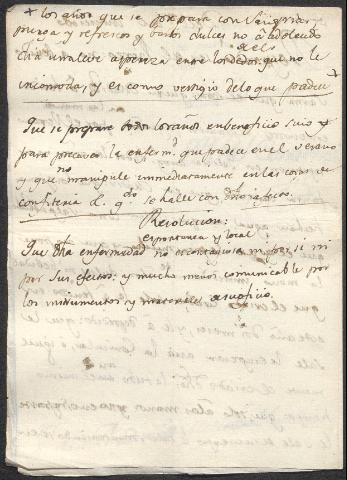 + los años que se prepara con Sangrias
purga y refrescos y baños dulces no a adolecido
otra una leve aspereza entre los dedos, que no le
incomoda, y es como vestigio de lo que padece
Que se prepare todos los años en beneficio suio y
para precaver la enferm.d que padece en el verano
y que no manipule immediatamente en las cosas de
confiteria &. q.do se halle con dho afecto.
Resolucion:
espontanea y local
Que dha enfermedad no es contagiosa ni por si ni
por sus efectos: y mucho menos comunicable por
los instrumentos y materiales a su oficio.